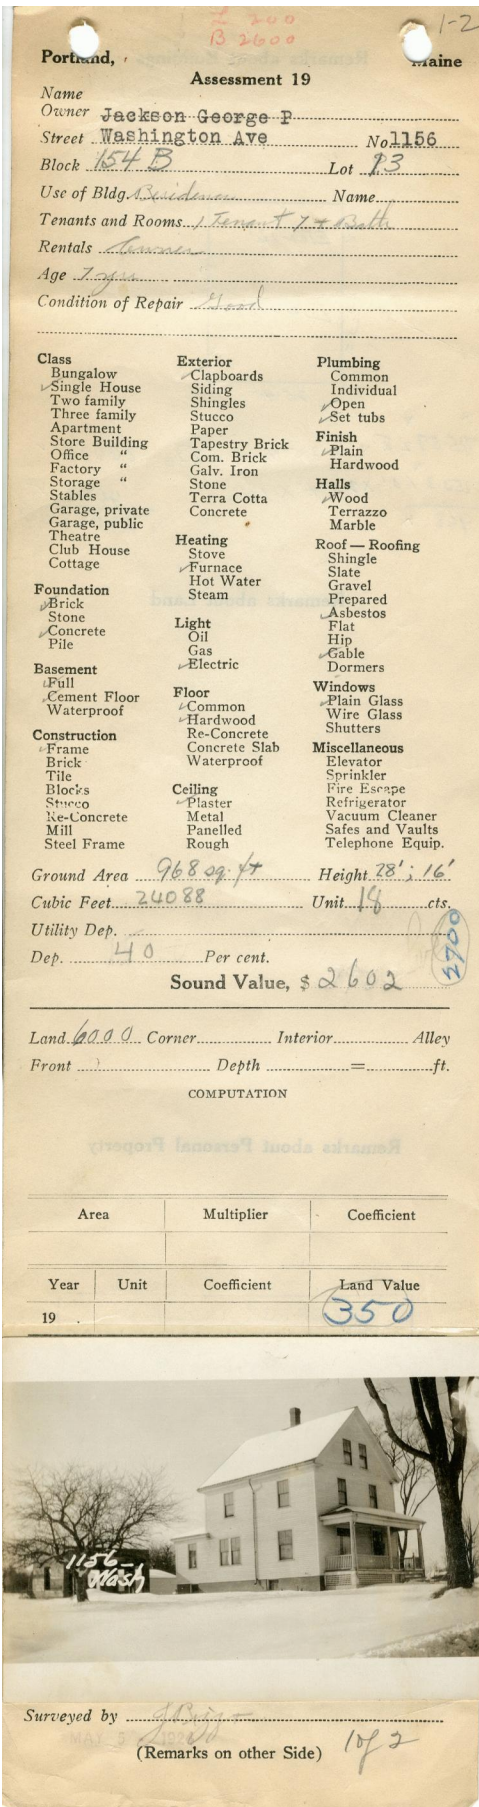 L 200
B 2600
1-2
Portland, Maine
Assessment 19
Name
Owner Jackson George P
Street Washington Ave No. 1156
Block 154 B Lot 23
Use of Bldg. Residence Name
Tenants and Rooms 1 Tenant 7 + Bath
Rentals Owner
Age 7 yrs
Condition of Repair Good
Class
Bungalow
✓Single House
Two family
Three family
Apartment
Store Building
Office "
Factory "
Storage "
Stables
Garage, private
Garage, public
Theatre
Club House
Cottage
Foundation
✓Brick
Stone
✓Concrete
Pile
Basement
✓Full
✓Cement Floor
Waterproof
Construction
✓Frame
Brick
Tile
Blocks
Stucco
Re-Concrete
Mill
Steel Frame
Exterior
✓Clapboards
Siding
Shingles
Stucco
Paper
Tapestry Brick
Com. Brick
Galv. Iron
Stone
Terra Cotta
Concrete
Heating
Stove
✓Furnace
Hot Water
Steam
Light
Oil
Gas
✓Electric
Floor
✓Common
✓Hardwood
Re-Concrete
Concrete Slab
Waterproof
Ceiling
✓Plaster
Metal
Panelled
Rough
Plumbing
Common
Individual
✓Open
✓Set tubs
Finish
✓Plain
Hardwood
Halls
✓Wood
Terrazzo
Marble
Roof — Roofing
Shingle
Slate
Gravel
Prepared
✓Asbestos
Flat
Hip
✓Gable
Dormers
Windows
✓Plain Glass
Wire Glass
Shutters
Miscellaneous
Elevator
Sprinkler
Fire Escape
Refrigerator
Vacuum Cleaner
Safes and Vaults
Telephone Equip.
Ground Area 968 sq. ft Height 28'; 16'
Cubic Feet 24088 Unit 18 cts.
Utility Dep.
Dep. 40 Per cent.
2700
Sound Value, $ 2602
Land 6000 Corner Interior Alley
Front Depth = ft.
COMPUTATION
Area Multiplier Coefficient
Year Unit Coefficient Land Value
19 350
1156-
Wash
Surveyed by
MAY
(Remarks on other Side) 1 of 2